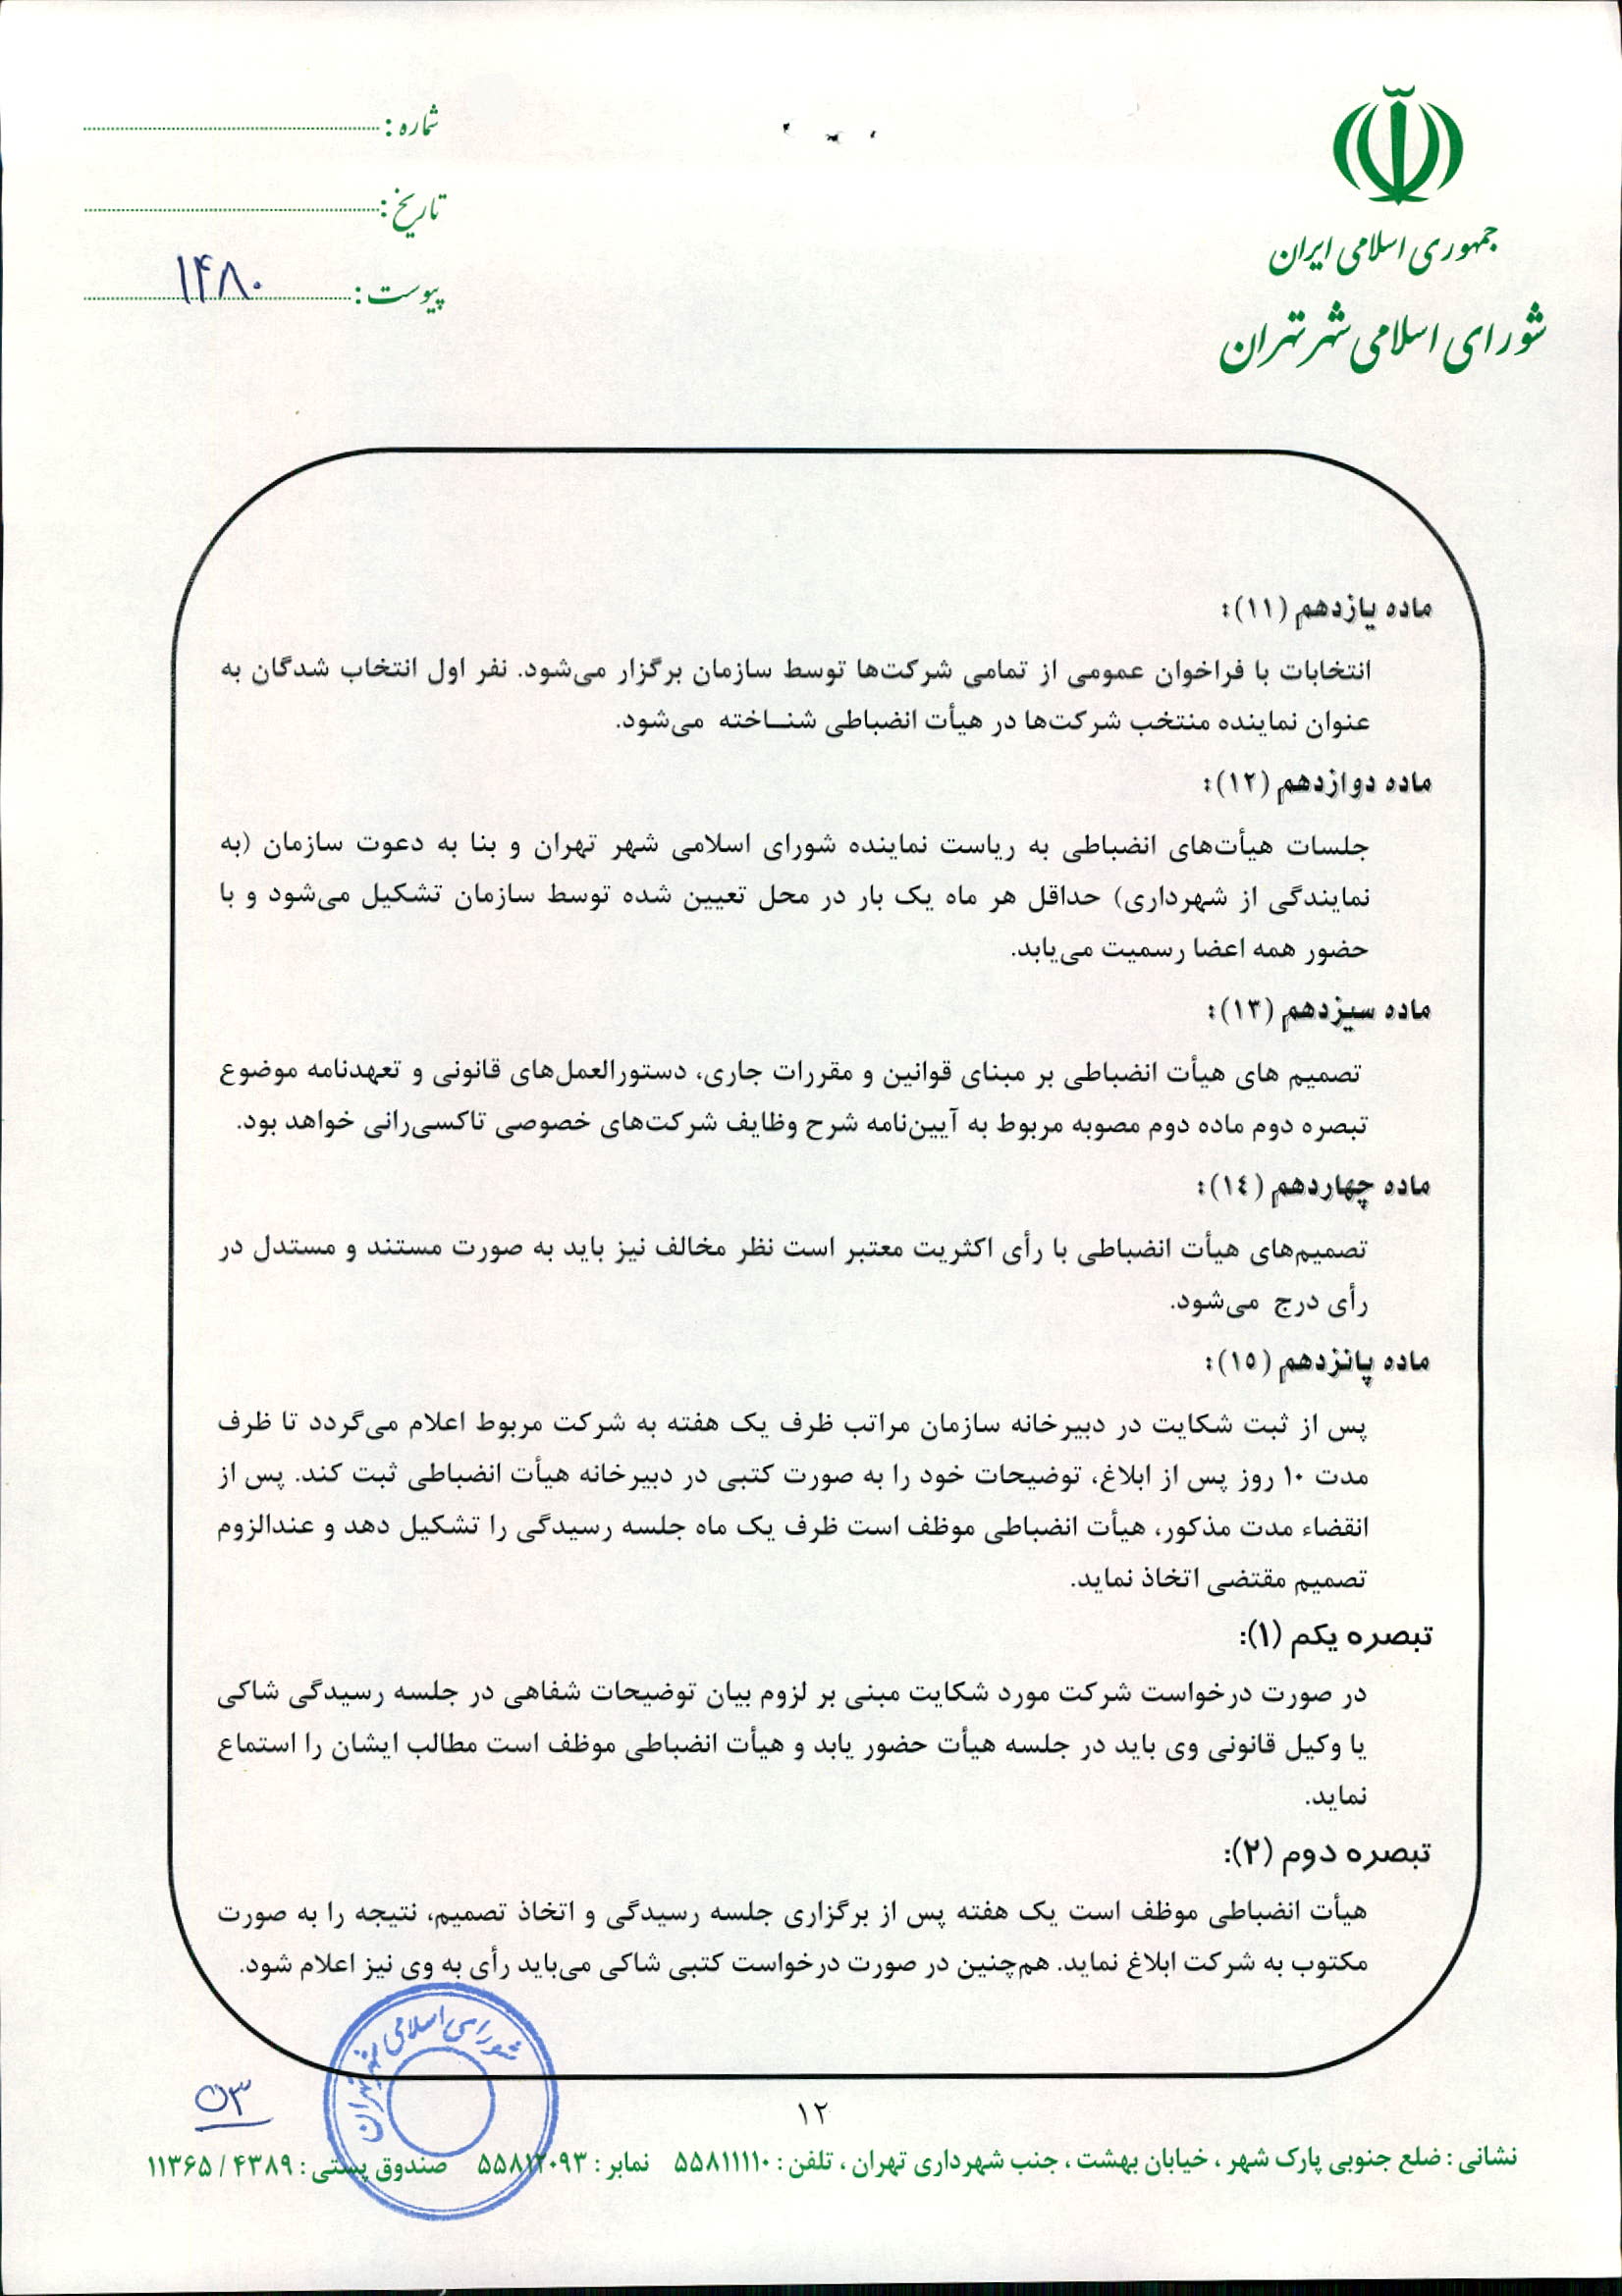 جمهوری اسلامی ایران
شورای اسلامی شهر تهران
شماره :
تاریخ :
پیوست : ۱۴۸۰
ماده یازدهم (۱۱):
انتخابات با فراخوان عمومی از تمامی شرکت‌ها توسط سازمان برگزار می‌شود. نفر اول انتخاب شدگان به
عنوان نماینده منتخب شرکت‌ها در هیأت انضباطی شنـاخته می‌شود.
ماده دوازدهم (۱۲):
جلسات هیأت‌های انضباطی به ریاست نماینده شورای اسلامی شهر تهران و بنا به دعوت سازمان (به
نمایندگی از شهرداری) حداقل هر ماه یک بار در محل تعیین شده توسط سازمان تشکیل می‌شود و با
حضور همه اعضا رسمیت می‌یابد.
ماده سیزدهم (۱۳):
تصمیم های هیأت انضباطی بر مبنای قوانین و مقررات جاری، دستورالعمل‌های قانونی و تعهدنامه موضوع
تبصره دوم ماده دوم مصوبه مربوط به آیین‌نامه شرح وظایف شرکت‌های خصوصی تاکسی‌رانی خواهد بود.
ماده چهاردهم (۱٤):
تصمیم‌های هیأت انضباطی با رأی اکثریت معتبر است نظر مخالف نیز باید به صورت مستند و مستدل در
رأی درج می‌شود.
ماده پانزدهم (۱۵):
پس از ثبت شکایت در دبیرخانه سازمان مراتب ظرف یک هفته به شرکت مربوط اعلام می‌گردد تا ظرف
مدت ۱۰ روز پس از ابلاغ، توضیحات خود را به صورت کتبی در دبیرخانه هیأت انضباطی ثبت کند. پس از
انقضاء مدت مذکور، هیأت انضباطی موظف است ظرف یک ماه جلسه رسیدگی را تشکیل دهد و عندالزوم
تصمیم مقتضی اتخاذ نماید.
تبصره یکم (۱):
در صورت درخواست شرکت مورد شکایت مبنی بر لزوم بیان توضیحات شفاهی در جلسه رسیدگی شاکی
یا وکیل قانونی وی باید در جلسه هیأت حضور یابد و هیأت انضباطی موظف است مطالب ایشان را استماع
نماید.
تبصره دوم (۲):
هیأت انضباطی موظف است یک هفته پس از برگزاری جلسه رسیدگی و اتخاذ تصمیم، نتیجه را به صورت
مکتوب به شرکت ابلاغ نماید. هم‌چنین در صورت درخواست کتبی شاکی می‌باید رأی به وی نیز اعلام شود.
شورای اسلامی شهر تهران
۱۲
نشانی : ضلع جنوبی پارک شهر ، خیابان بهشت ، جنب شهرداری تهران ، تلفن : ۵۵۸۱۱۱۱۰ نمابر : ۵۵۸۱۲۰۹۳ صندوق پستی : ۴۳۸۹ / ۱۱۳۶۵